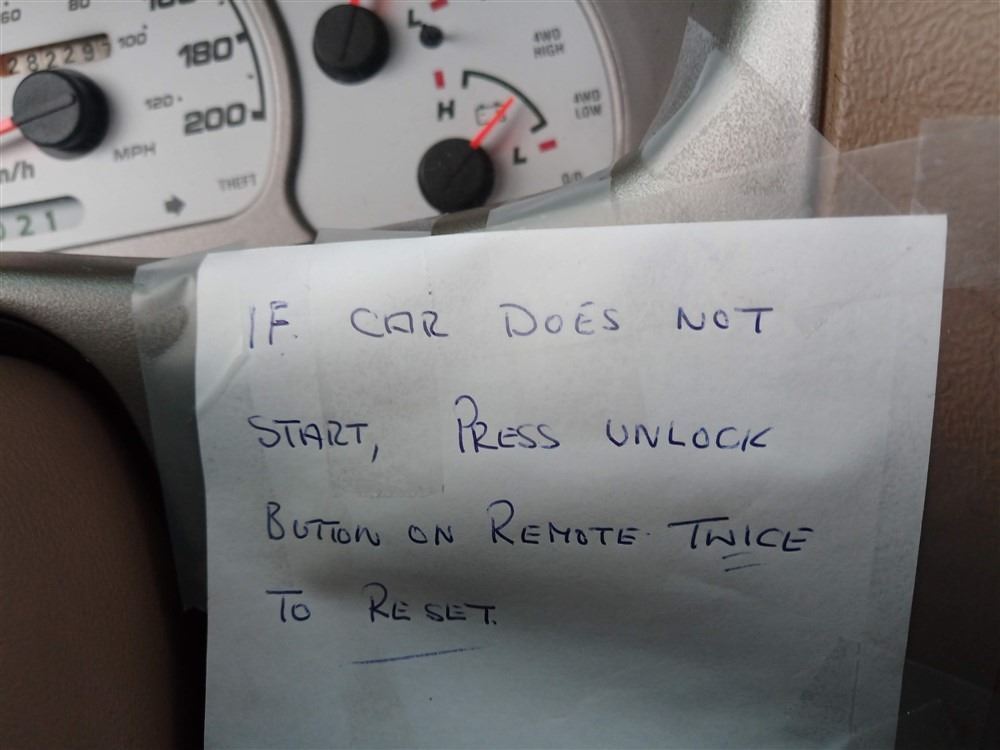 60
80
180
200
100
120
MPH
THEFT
021
L
H
L
4WD
HIGH
4WD
LOW
O/D
IF CAR DOES NOT
START, PRESS UNLOCK
BUTTON ON REMOTE TWICE
TO RESET.